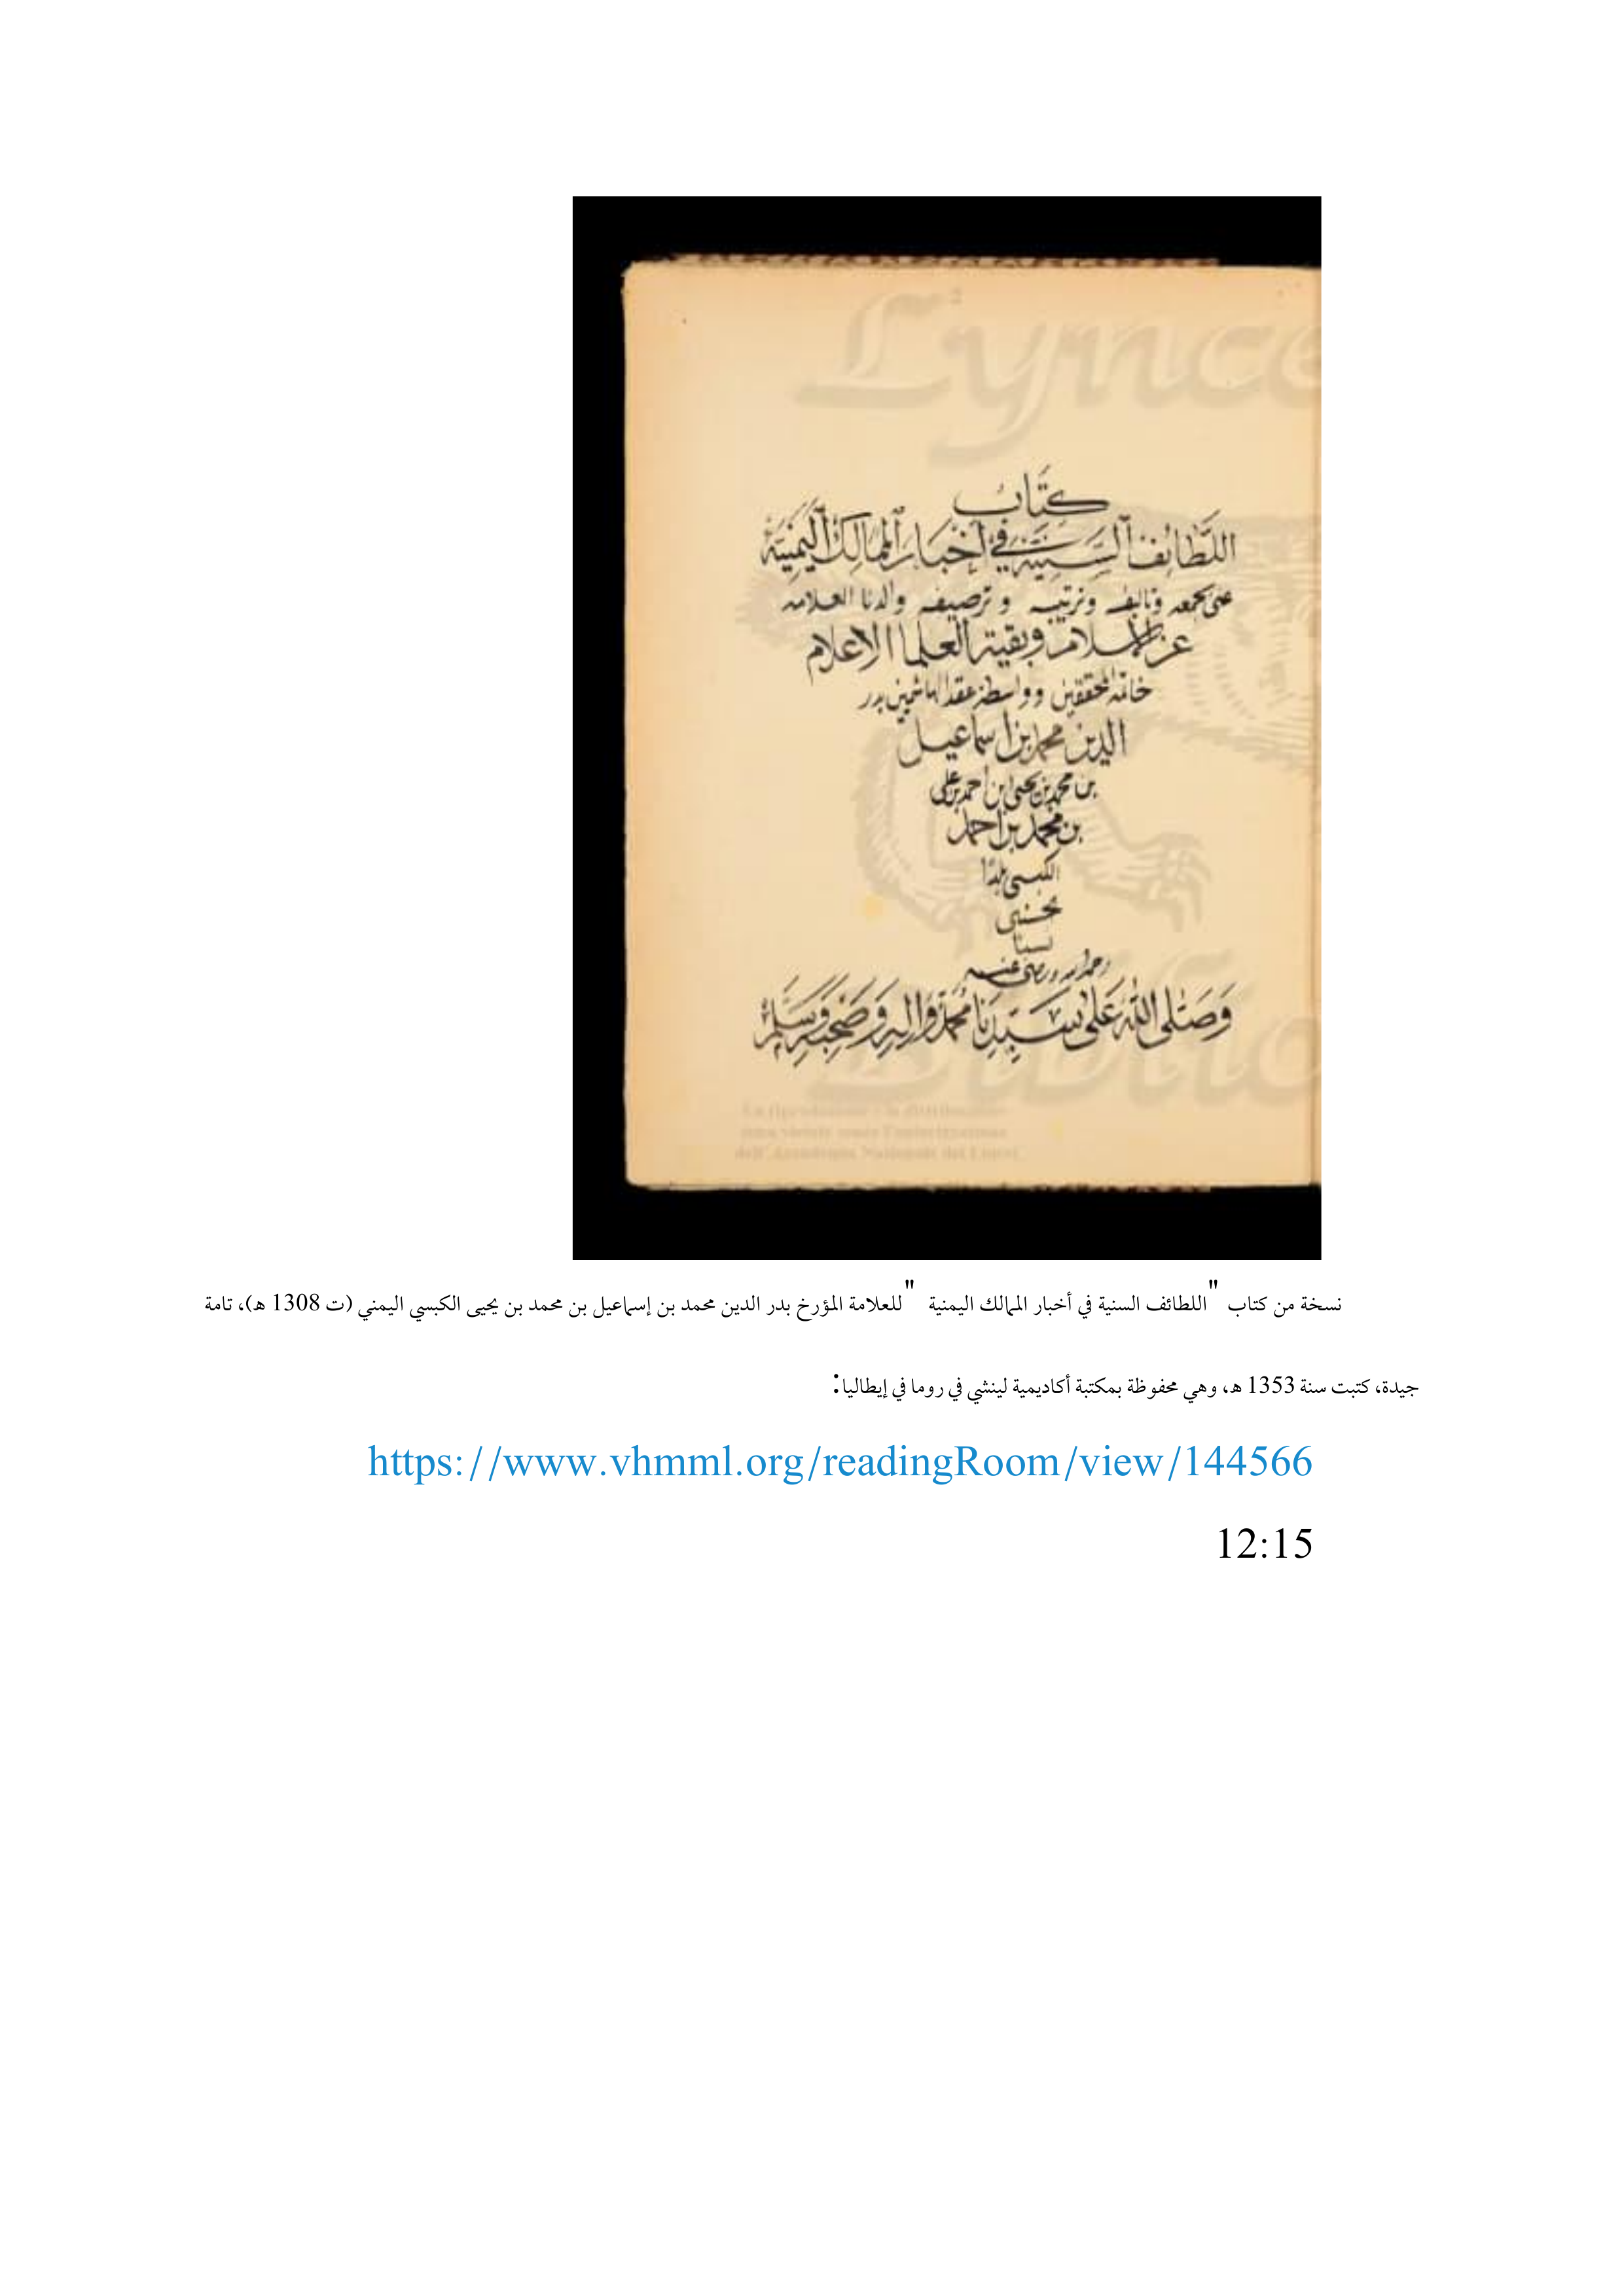 Lynce
كِتَابُ
اللَّطَائِفُ السَّنِيَّة في أخبَار المَالِك اليَمنِيَّة
عنى بجمعه وتاليفه وترتيبه وترصيفه والدنا العلامه
عز الاسلام وبقية العلما الاعلام
خاتمة المحققين وواسطة عقد الهاشميين بدر
الدين محمد بن اسماعيل
بن محمد بن يحيى ابن احمد بن علي
بن محمد بن احمد
الكبسي بلدًا
نسبا
رحمه الله ورضي عنه
وَصَلى اللهُ عَلى سَيدِنَا مُحمدٍ وَاله وَصَحبِه وَسَلم
Biblio
dell'Accademia Nazionale dei Lincei
نسخة من كتاب "اللطائف السنية في أخبار الممالك اليمنية "للعلامة المؤرخ بدر الدين محمد بن إسماعيل بن محمد بن يحيى الكبسي اليمني (ت 1308 هـ)، تامة
جيدة، كتبت سنة 1353 هـ، وهي محفوظة بمكتبة أكاديمية لينشي في روما في إيطاليا:
https://www.vhmml.org/readingRoom/view/144566
12:15